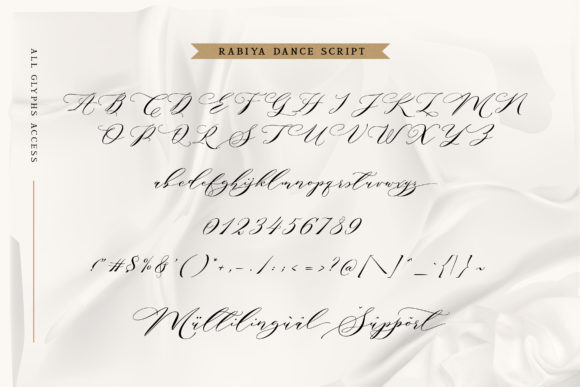 RABIYA DANCE SCRIPT
ALL GLYPHS ACCESS
A B C D E F G H I J K L M N
O P Q R S T U V W X Y Z
abcdefghijklmnopqrstuvwxyz
0123456789
!"#$%&'()*+,-./:;<=>?@[\]^_`{|}~
Mültilingùàl Šüppört